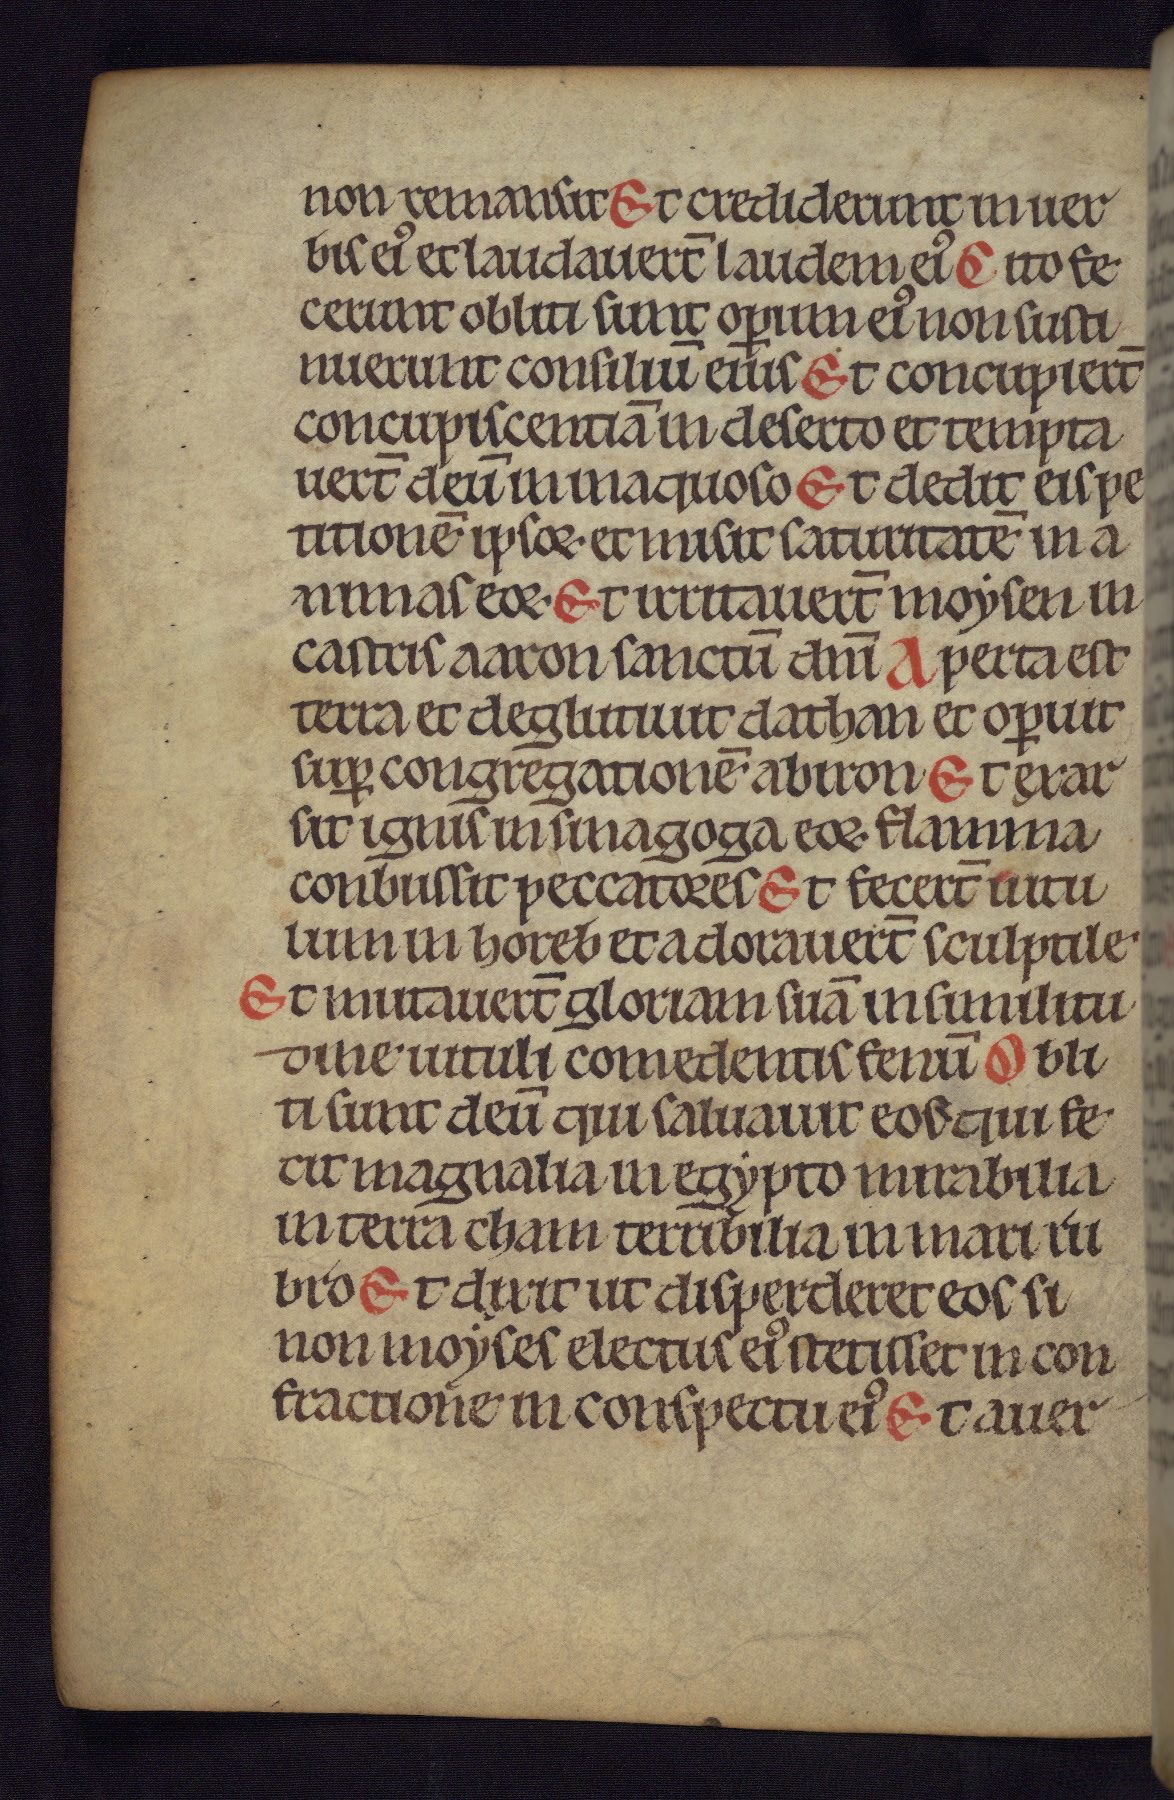 non remansit Et crediderunt in uer
bis ei⁹ et laudauert̄ laudem ei⁹ C ito fe
cerunt obliti sunt oꝑum ei⁹ non susti
nuerunt consiliū eius Et concupiert̄
concupiscentiā in deserto et tempta
uert̄ deū in inaquoso Et dedit eis pe
titionē ipsoꝝ et misit saturitatē in a
nimas eoꝝ Et irritauert̄ moẏsen in
castris aaron sanctū dn̄i A perta est
terra et deglutiuit dathan et oꝑuit
suꝑ congregationē abiron Et exar
sit ignis in sinagoga eoꝝ flamma
conbussit peccatores Et fecert̄ uitu
lum in horeb et adorauert̄ sculptile
Et mutauert̄ gloriam suā in similitu
dine uituli comedentis fenū O bli
ti sunt deū qui saluauit eos qui fe
cit magnalia in egẏpto mirabilia
in terra cham terribilia in mari ru
bro Et dixit ut disperderet eos si
non moẏses electus ei⁹ stetisset in con
fractione in conspectu ei⁹ Et auer